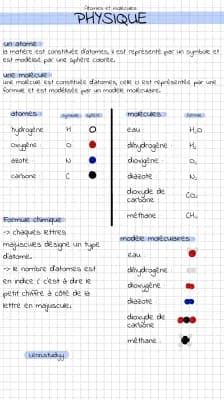 Atomes et molécules
PHYSIQUE
un atome
la matière est constituée d'atomes, il est représenté par un symbole et
est modélisé par une sphère colorée.
une molécule
une molécule est constituée d'atomes, celle ci est représentée par une
formule et est modélisée par un modèle moléculaire.
atomes symbole sphère
hydrogène H
oxygène O
azote N
carbone C
molécules formule
eau H₂O
dihydrogène H₂
dioxygène O₂
diazote N₂
dioxyde de
carbone CO₂
méthane CH₄
Formule chimique
-> chaques lettres
majuscules désigne un type
d'atome.
-> le nombre d'atomes est
en indice ( c'est à dire le
petit chiffre à côté de la
lettre en majuscule.
modèle moléculaires
eau
dihydrogène
dioxygène
diazote
dioxyde de
carbone
méthane